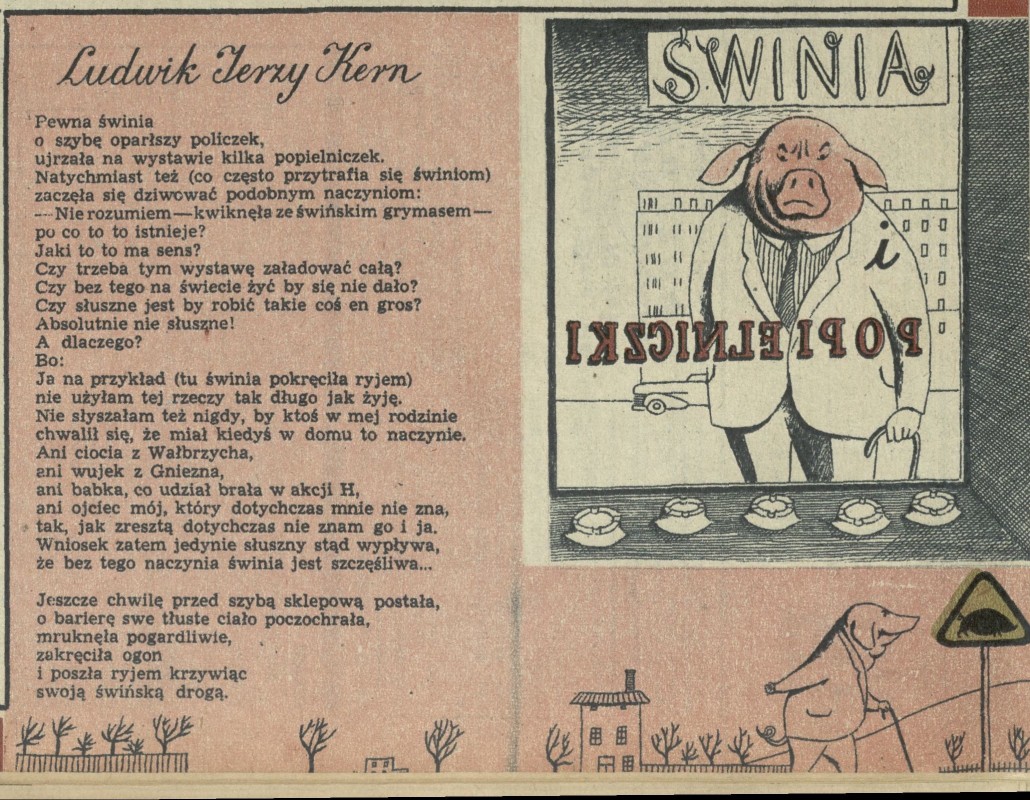 Ludwik Jerzy Kern
ŚWINIA
i
POPIELNICZKI
Pewna świnia
o szybę oparłszy policzek,
ujrzała na wystawie kilka popielniczek.
Natychmiast też (co często przytrafia się świniom)
zaczęła się dziwować podobnym naczyniom:
— Nie rozumiem — kwiknęła ze świńskim grymasem —
po co to to istnieje?
Jaki to to ma sens?
Czy trzeba tym wystawę załadować całą?
Czy bez tego na świecie żyć by się nie dało?
Czy słuszne jest by robić takie coś en gros?
Absolutnie nie słuszne!
A dlaczego?
Bo:
Ja na przykład (tu świnia pokręciła ryjem)
nie użyłam tej rzeczy tak długo jak żyję.
Nie słyszałam też nigdy, by ktoś w mej rodzinie
chwalił się, że miał kiedyś w domu to naczynie.
Ani ciocia z Wałbrzycha,
ani wujek z Gniezna,
ani babka, co udział brała w akcji H,
ani ojciec mój, który dotychczas mnie nie zna,
tak, jak zresztą dotychczas nie znam go i ja.
Wniosek zatem jedynie słuszny stąd wypływa,
że bez tego naczynia świnia jest szczęśliwa...
Jeszcze chwilę przed szybą sklepową postała,
o barierę swe tłuste ciało poczochrała,
mruknęła pogardliwie,
zakręciła ogon
i poszła ryjem krzywiąc
swoją świńską drogą.